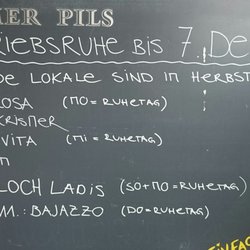 HER PILS
RIEBSRUHE BIS 7. DE
DE LOKALE SIND IM HERBST
OSA (MO = RUHETAG)
CRISTNER
VITA (MI = RUHETAG)
M
LOCH LADIS (SO+MO = RUHETAG)
M.: BAJAZZO (DO = RUHETAG)
EINFAC